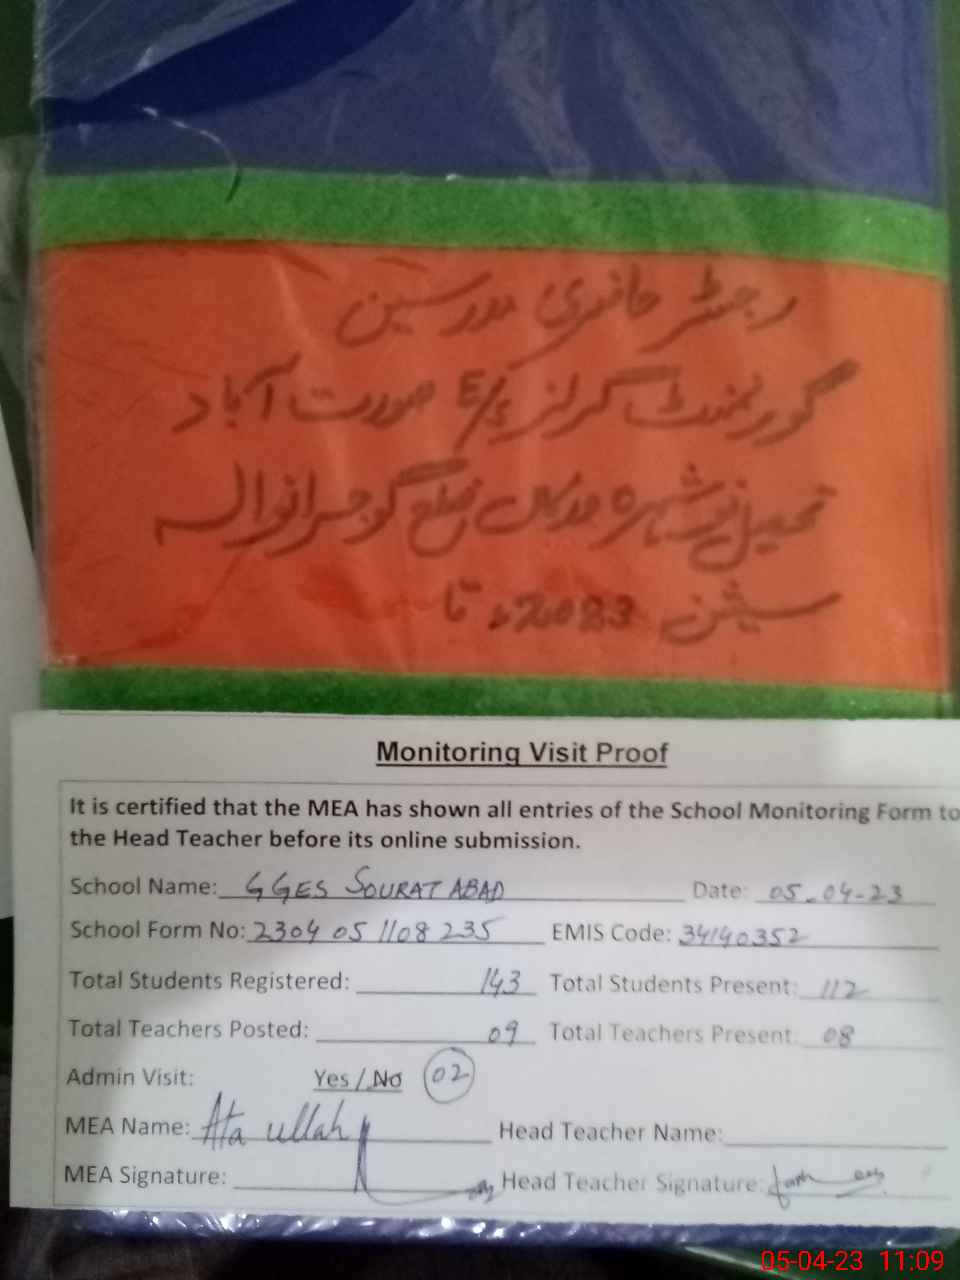 رجسٹر حاضری مدرسین
گورنمنٹ گرلز E/S صورت آباد
تحصیل نوشہرہ ورکاں ضلع گوجرانوالہ
سیشن 2023ء تا
Monitoring Visit Proof
It is certified that the MEA has shown all entries of the School Monitoring Form to
the Head Teacher before its online submission.
School Name: GGES SOURAT ABAD Date: 05-04-23
School Form No: 2304 05 1108 235 EMIS Code: 34140352
Total Students Registered: 143 Total Students Present: 112
Total Teachers Posted: 09 Total Teachers Present: 08
Admin Visit: Yes / No 02
MEA Name: Ata ullah Head Teacher Name:
MEA Signature: Head Teacher Signature:
05-04-23 11:09